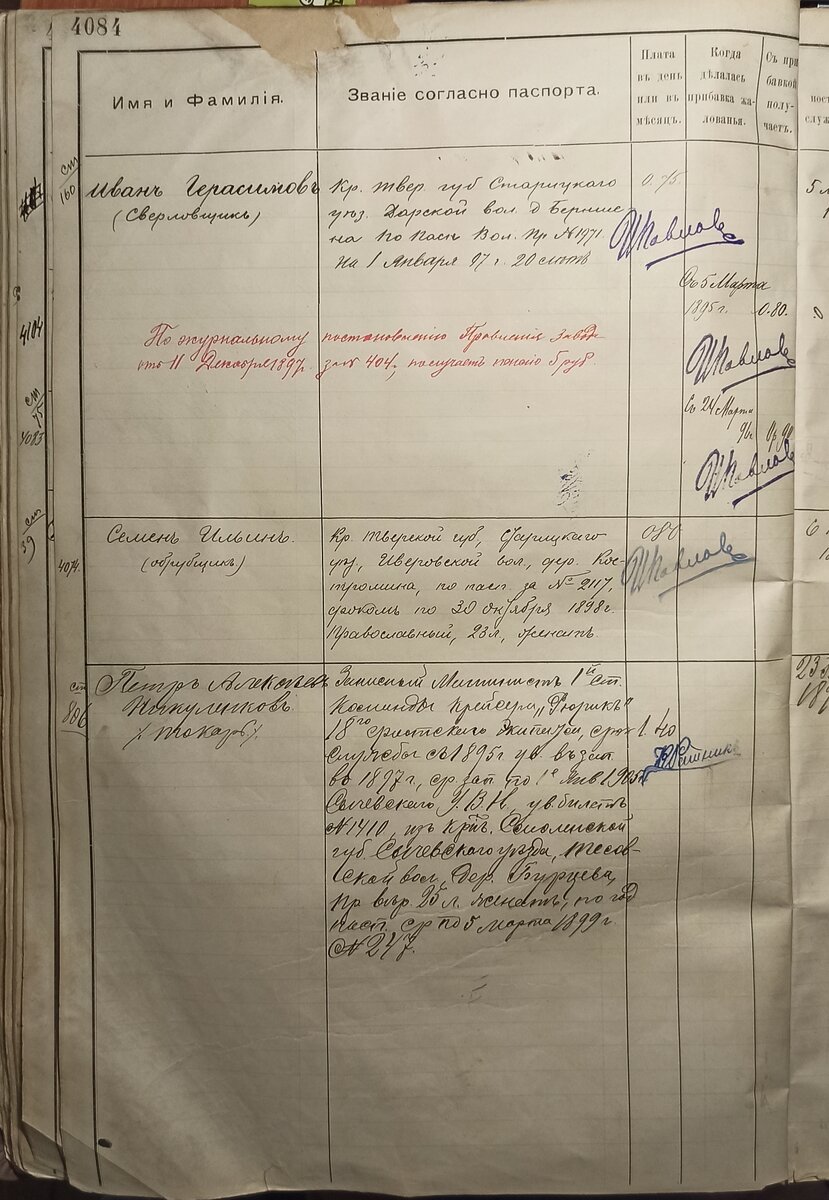 4084
Имя и Фамилія.
Званіе согласно паспорта.
Плата
въ день
или въ
мѣсяцъ.
Когда
дѣлалась
прибавка жа-
лованья.
Съ при
бавкой
полу-
чаетъ.
ст
160
Иванъ Герасимовъ
(Сверловщикъ)
Кр. Твер. губ Старицкаго
уѣз. Дарской вол. д
на по пасп. Вол. Пр №1971
на 1 Января 97 г. 20 лѣтъ
0.75.
ИПавловъ
Съ 5 Марта
1895 г. 0.80.
ИПавловъ
Съ 24 Марта
96 г. 0 р 90
ИПавловъ
По журнальному постановленію Правленія Завод.
отъ 11 Декабря 1897 г. за № 404, получаетъ пенсію 5 руб.
4104
ст
75
4083
ст
39
4074.
Семенъ Ильинъ.
(обрубщикъ)
Кр. Тверской губ, Старицкаго
уѣз, Иверовской вол, дер. Кос-
тромина, по пасп. за № 2117,
срокомъ по 30 октября 1898 г.
Православный, 23 л, женатъ.
080
ИПавловъ
ст
806
Петръ Алексѣевъ
Никуленковъ
(токарь)
Запасный Машинистъ 1й ст.
Команды Крейсера „Рюрикъ"
18го флотскаго Экипажа, срокъ
службы съ 1895 г ув. въ зап
въ 1897 г, ср. зап. по 1е Янв 1905 г
Сычевскаго У.В.Н, ув. билетъ
№1410, изъ Крѣ. Смоленской
губ. Сычевскаго уѣзда, Тесов-
ской вол, Дер. Бурцева,
пр. вѣр. 25 л. женатъ, по год
пасп. ср по 5 Марта 1899 г.
№ 247.
1.40